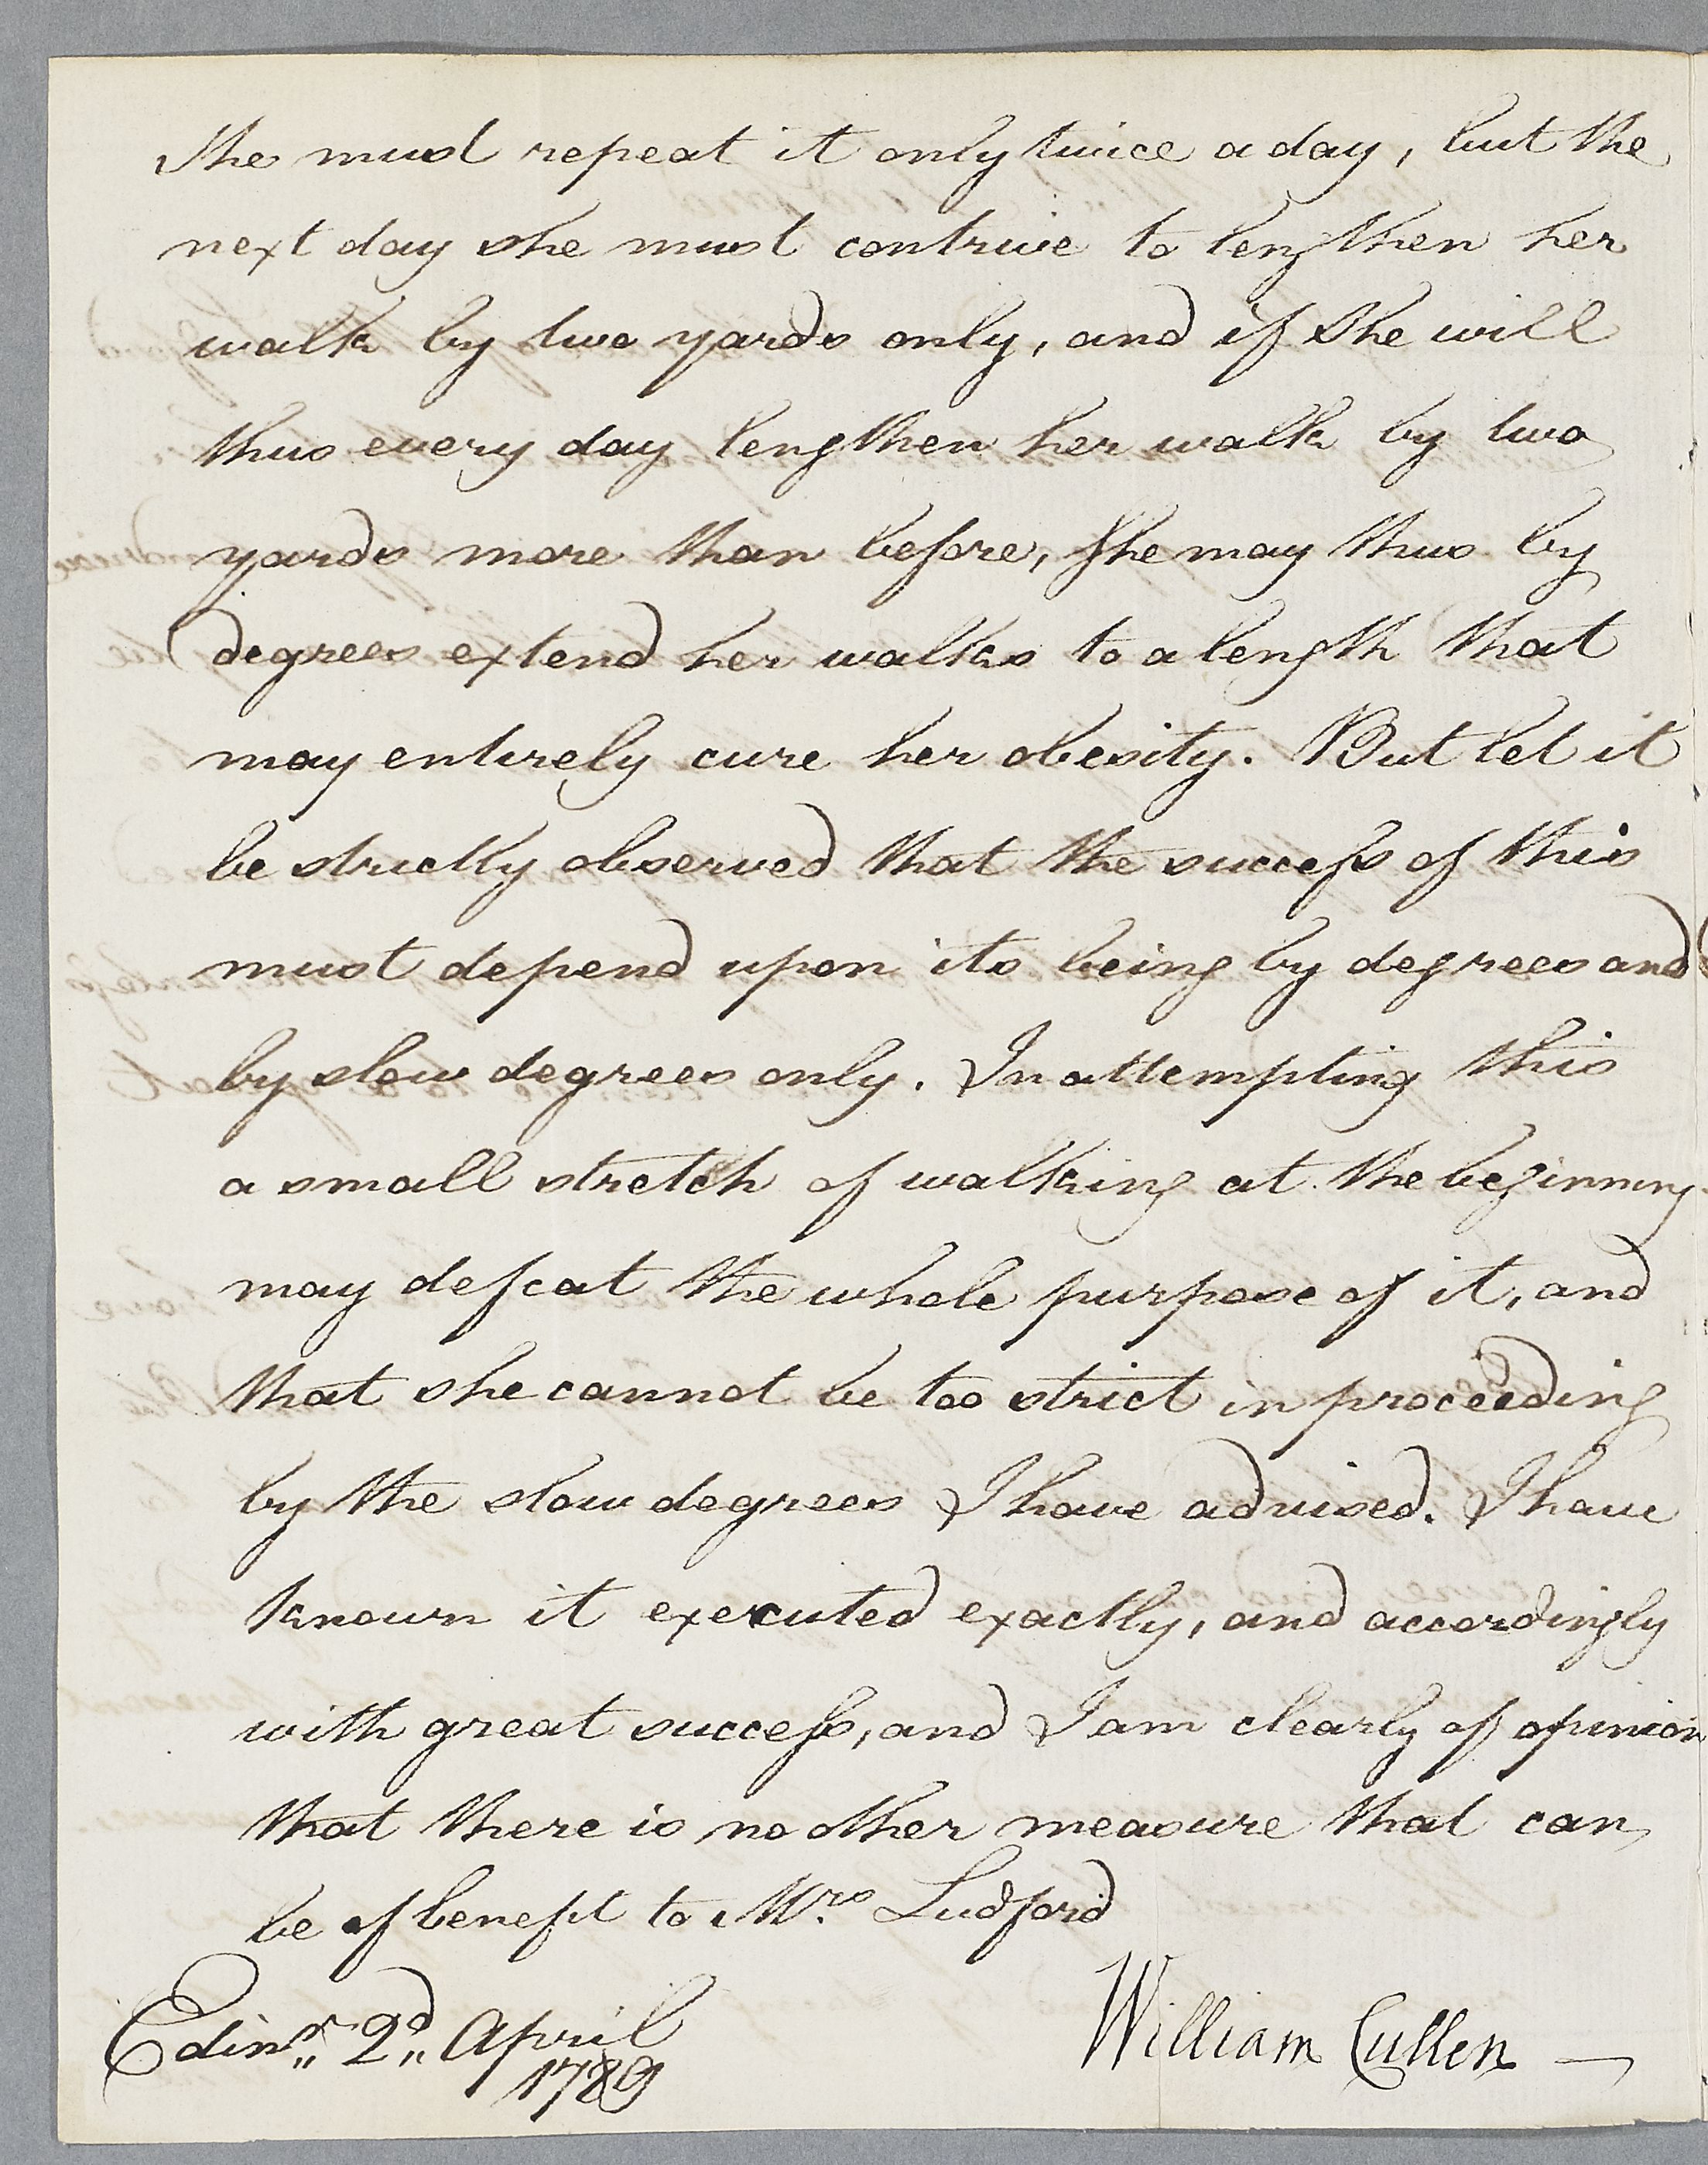 She must repeat it only twice a day, but the
next day she must contrive to lengthen her
walk by two yards only, and if she will
thus every day lengthen her walk by two
yards more than before, she may thus by
degrees extend her walks to a length that
may entirely cure her obesity. But let it
be strictly observed that the success of this
must depend upon its being by degrees and
by slow degrees only. In attempting this
a small stretch of walking at the beginning
may defeat the whole purpose of it, and
that she cannot be too strict in proceeding
by the slow degrees I have advised. I have
known it executed exactly, and accordingly
with great success, and I am clearly of opinion
that there is no other measure that can
be of benefit to Mrs. Ludford
Edinr. 2d. April
1789
William Cullen —